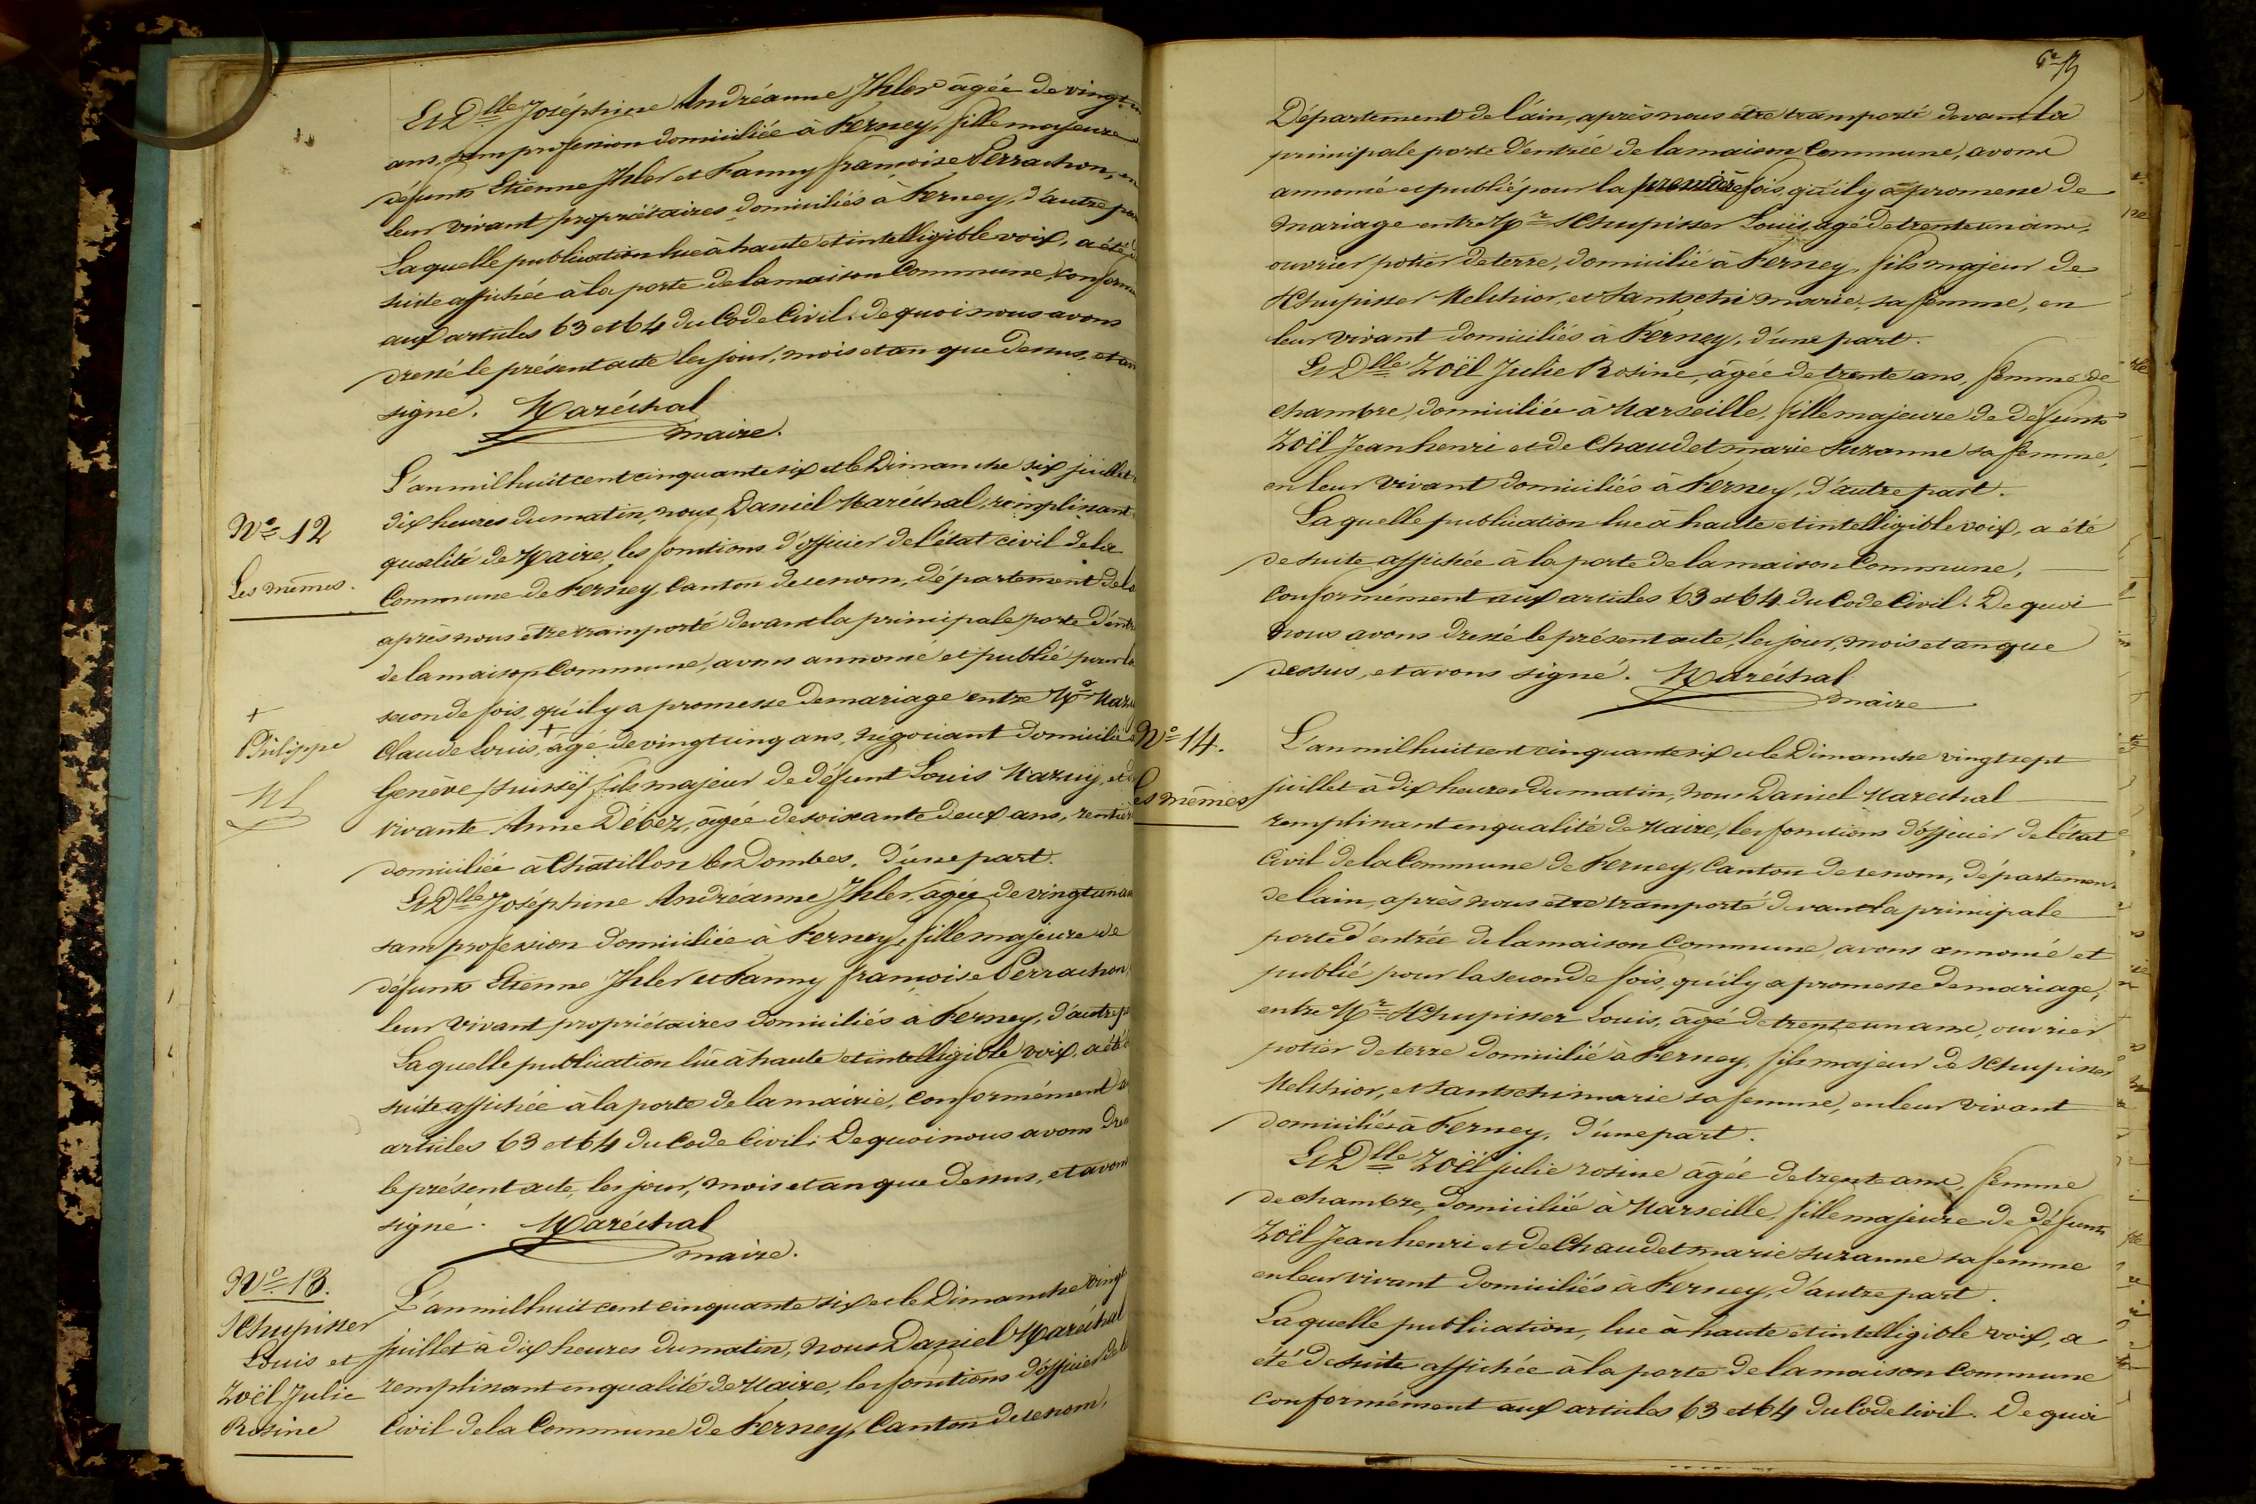 Et Dlle Joséphine Andréanne Ihler âgée de vingt un
ans, sans profession domiciliée à Ferney, fille majeure
défunts Etienne Ihler et Fanny françoise Perrachon, en
leur vivant propriétaires domiciliés à Ferney, d'autre par
Laquelle publication lue à haute et intelligible voix, a été
suite affichée à la porte de la maison Commune, conform
aux articles 63 et 64 du Code Civil. de quoi nous avons
dressé le présent acte les jour, mois et an que dessus, et av
signé. Maréchal
maire.
Nº 12
Les mêmes.
L'an mil huit cent cinquante six et le Dimanche six juillet
dix heures du matin, nous Daniel Maréchal, remplissant
qualité de Maire, les fonctions d'officier de l'état civil de la
Commune de Ferney, Canton de ce nom, département de l
après nous être transporté devant la principale porte d'entr
de la maison Commune, avons annoncé et publié pour la
seconde fois, qu'il y a promesse de mariage entre Mr Mazu
Claude Louis, + âgé de vingt cinq ans, négociant domicilié
+
Philippe
ML
Genève (suisse) fils majeur de défunt Louis Mazuÿ, et d
vivante Anne Débez, âgée de soixante deux ans, rentièr
domiciliée à Châtillon les Dombes, d'une part.
Et Dlle Joséphine Andréanne Ihler, âgée de vingt un an
sans profession domiciliée à Ferney, fille majeure de
défunts Etienne Ihler et Fanny françoise Perrachon,
leur vivant propriétaires domiciliés à Ferney, d'autre p
Laquelle publication lue à haute et intelligible voix, a été
suite affichée à la porte de la mairie, conformément
articles 63 et 64 du Code Civil. De quoi nous avons dres
le présent acte, les jour, mois et an que dessus, et avons
signé. Maréchal
maire.
Nº 13.
Schupisser
Louis et
Zoël Julie
Rosine
L'an mil huit cent cinquante six et le Dimanche vingt
juillet à dix heures du matin, nous Daniel Maréchal
remplissant en qualité de Maire, les fonctions d'officier de l
Civil de la Commune de Ferney, Canton de ce nom,
Département de l'ain, après nous être transporté devant la
principale porte d'entrée de la maison Commune, avons
annoncé et publié pour la première fois qu'il y a promesse de
mariage entre Mr Schupisser Louis, âgé de trente un ans,
ouvrier potier de terre, domicilié à Ferney, fils majeur de
Schupisser Melchior, et Santschi marie, sa femme, en
leur vivant domiciliés à Ferney, d'une part.
Et Dlle Zoël Julie Rosine, âgée de trente ans, femme de
chambre, domiciliée à Marseille, fille majeure de défunts
Zoël Jean henri et de Chaudet marie Suzanne sa femme,
en leur vivant domiciliés à Ferney, d'autre part.
Laquelle publication lue à haute et intelligible voix, a été
de suite affichée à la porte de la maison Commune,
conformément aux articles 63 et 64 du Code Civil. De quoi
nous avons dressé le présent acte, les jour, mois et an que
dessus, et avons signé. Maréchal
maire
Nº 14.
es mêmes
L'an mil huit cent cinquante six et le Dimanche vingt sept
juillet à dix heures du matin, nous Daniel Maréchal
remplissant en qualité de Maire, les fonctions d'officier de l'état
Civil de la Commune de Ferney, Canton de ce nom, département
de l'ain, après nous être transporté devant la principale
porte d'entrée de la maison Commune, avons annoncé et
publié pour la seconde fois, qu'il y a promesse de mariage,
entre Mr Schupisser Louis, âgé de trente un ans, ouvrier
potier de terre domicilié à Ferney, fils majeur de Schupisser
Melchior, et Santschi marie sa femme, en leur vivant
domiciliés à Ferney, d'une part.
Et Dlle Zoël julie rosine âgée de trente ans, femme
de chambre, domiciliée à Marseille, fille majeure de défunts
Zoël Jean henri et de Chaudet marie suzanne sa femme
en leur vivant domiciliés à Ferney, d'autre part.
Laquelle publication, lue à haute et intelligible voix, a
été de suite affichée à la porte de la maison Commune
conformément aux articles 63 et 64 du Code Civil. De quoi